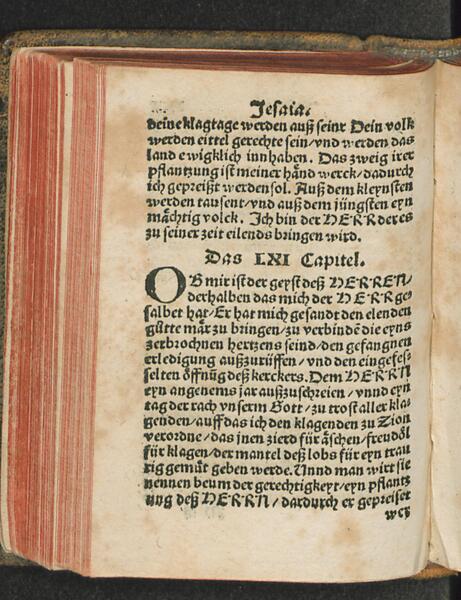 Jesaia.
deine klagtage werden auß seinr Dein volk
werden eittel gerechte sein/vnd werden das
land ewigklich innhaben. Das zweig irer
pflantzung ist meiner händ werck/dadurch
ich gepreißt werden sol. Auß dem kleynsten
werden tausent/vnd auß dem jüngsten eyn
mächtig volck. Ich bin der HERR der es
zu seiner zeit eilends bringen wird.
Das LXI Capitel.
OB mir ist der geyst deß HERREN/
derhalben das mich der HERR ge
salbet hat/Er hat mich gesandt den elenden
gůtte mär zu bringen/zu verbindē die eyns
zerbrochnen hertzens seind/den gefangnen
erledigung außzurüffen/vnd den eingefes-
selten öffnũg deß kerckers. Dem HERRN
eyn angenems jar außzuschreien/vnnd eyn
tag der rach vnserm Gott/zu trost aller kla-
genden/auff das ich den klagenden zu Zion
verordne/das jnen zierd für äschen/freudöl
für klagen/der mantel deß lobs für eyn trau
rig gemüt geben werde. Vnnd man wirt sie
nennen beum der gerechtigkeyt/eyn pflantz
ung deß HERRN/dardurch er gepreiset
wer